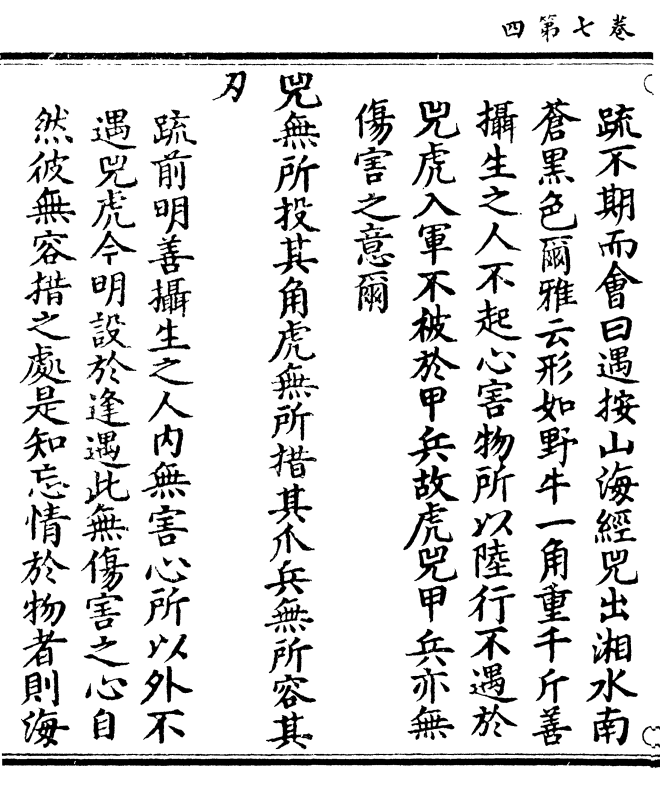 卷七第四
疏不期而會曰遇按山海經兕出湘水南
蒼黑色爾雅云形如野牛一角重千斤善
攝生之人不起心害物所以陸行不遇於
兕虎入軍不被於甲兵故虎兕甲兵亦無
傷害之意爾
兕無所投其角虎無所措其爪兵無所容其
刃
疏前明善攝生之人内無害心所以外不
遇兕虎今明設於逢遇此無傷害之心自
然彼無容措之處是知忘情於物者則海